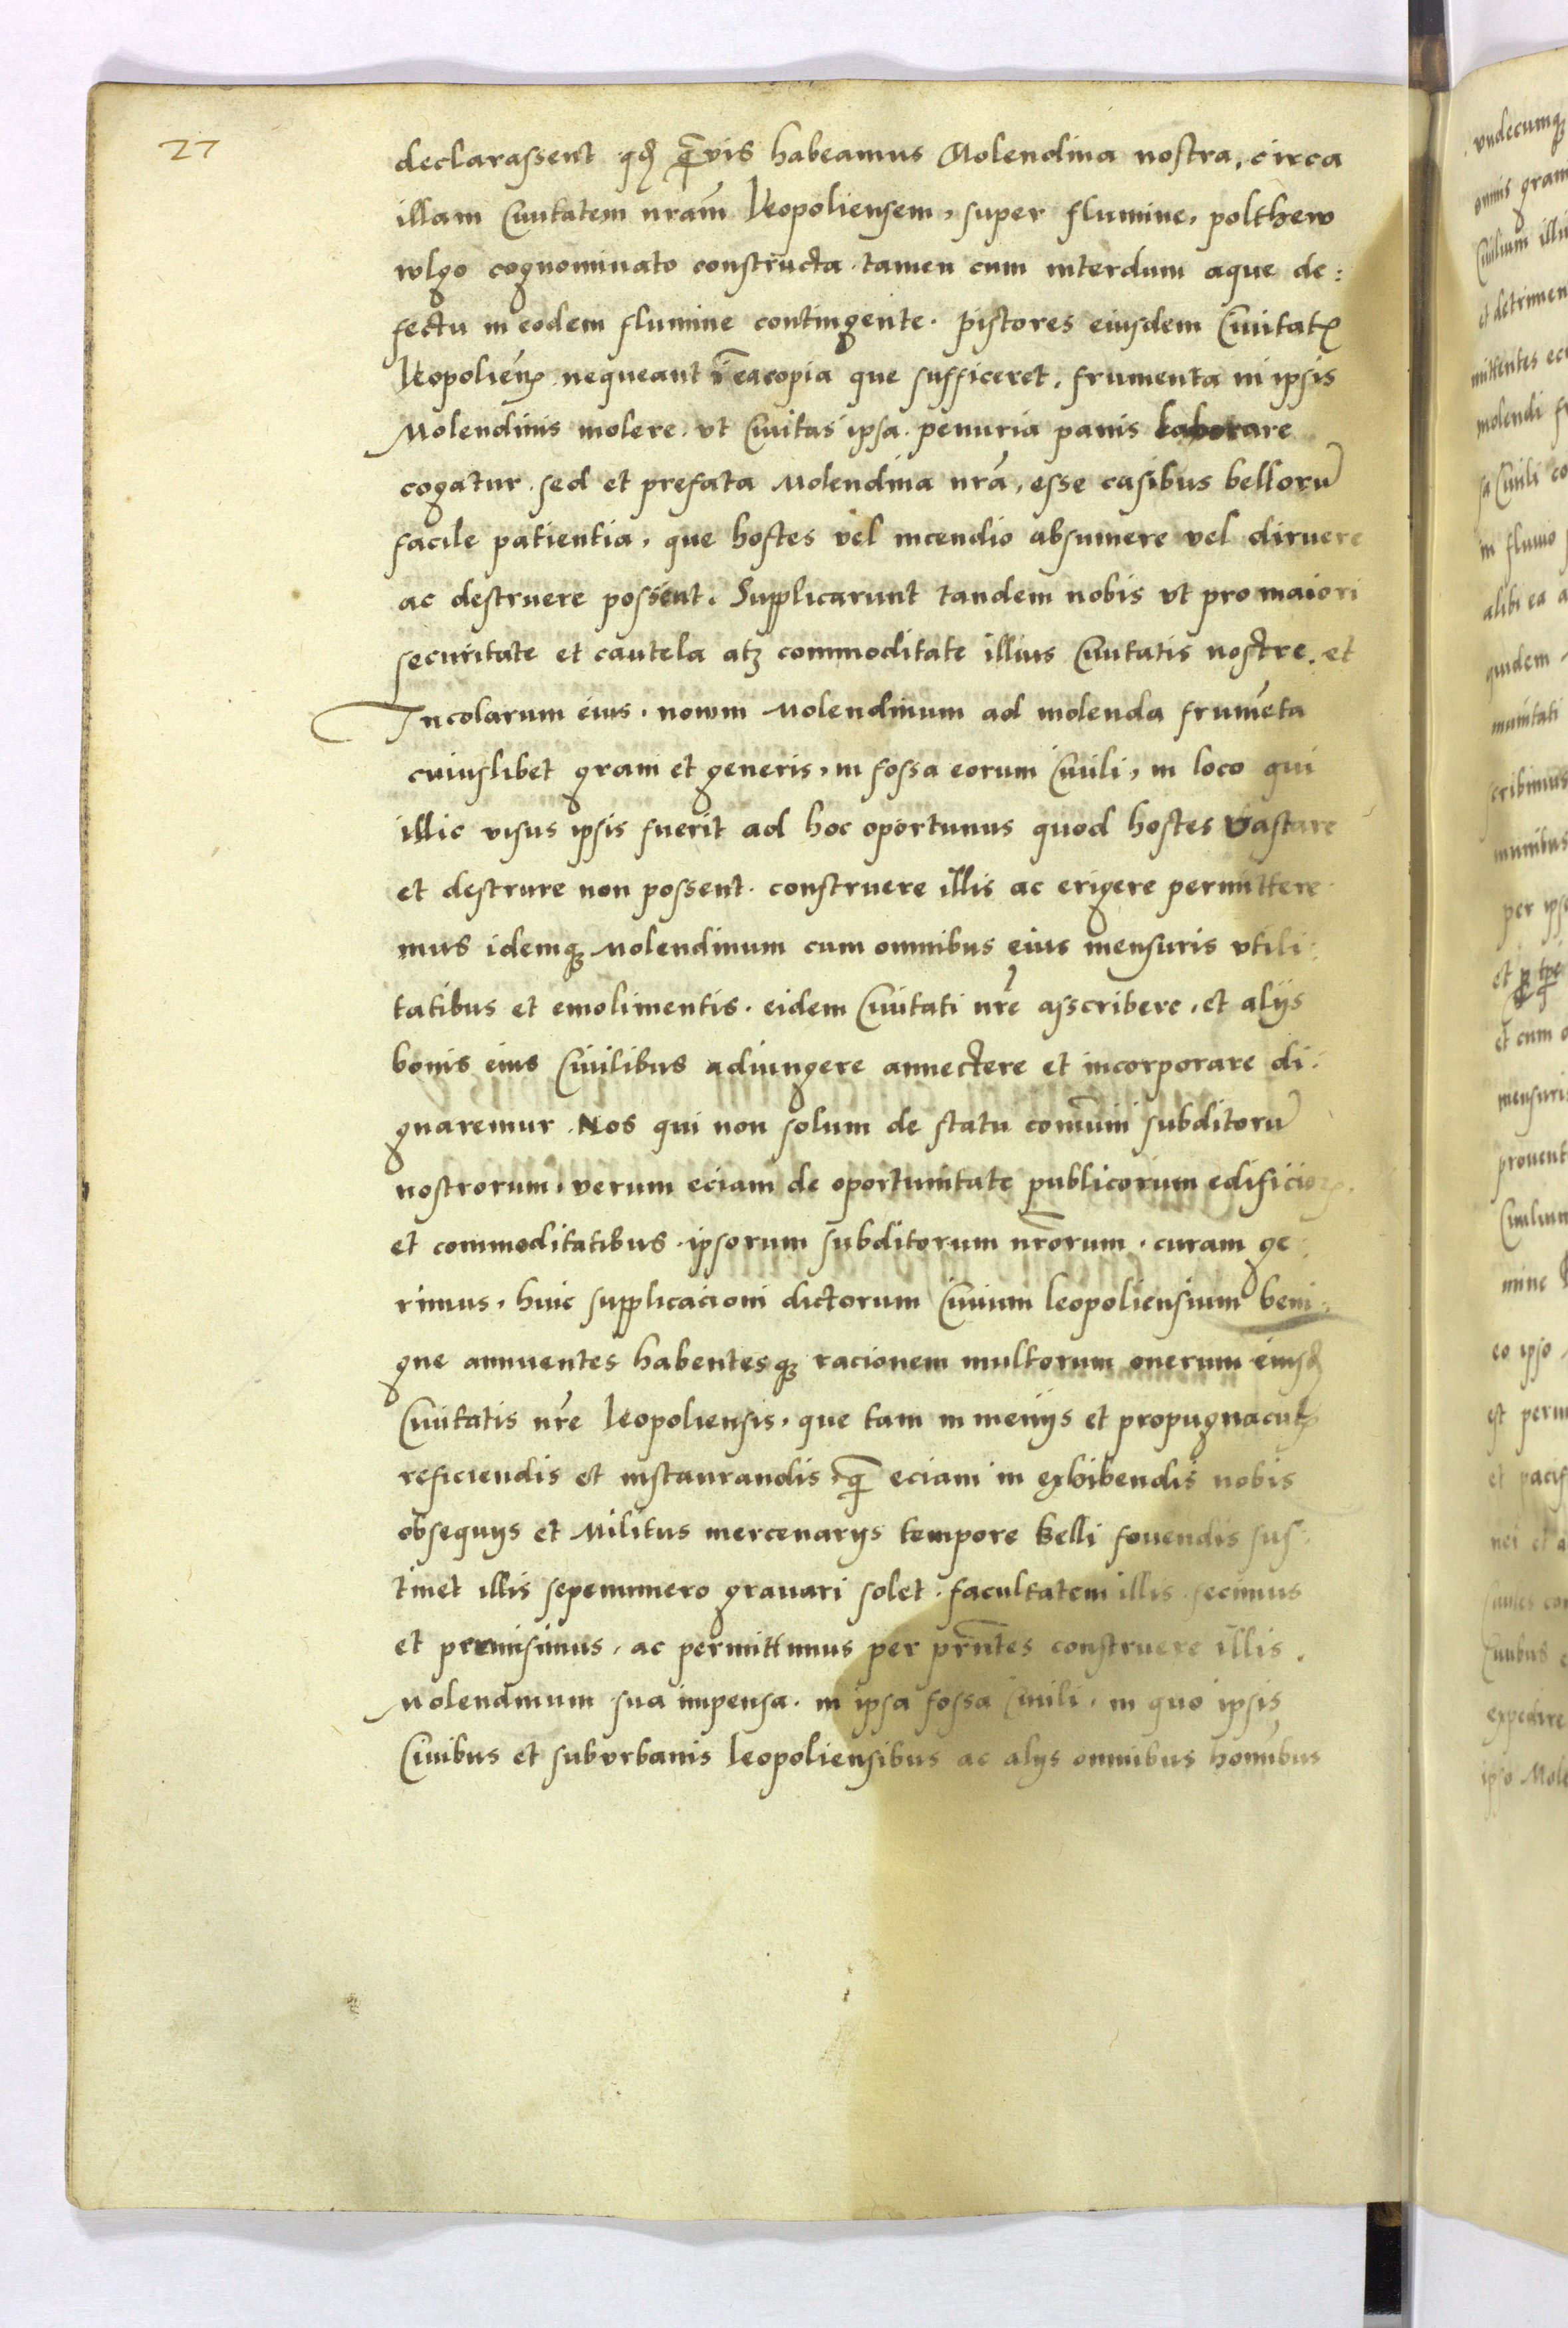 27
declarassent qd̶ qᷓvis habeamus Molendina nostra, circa
illam Civitatem nr̄am Leopoliensem, super flumine, polthew
wlgo cognominato constructa. tamen cum interdum aque de:
fectu in eodem flumine contingente. pistores eiusdem Civitatꝭ
Leopolien̄ꝭ nequeant ī ea copia que sufficeret, frumenta in ipsis
Molendinis molere. vt Civitas ipsa. penuria panis laborare
cogatur. sed et prefata Molendina nr̄a, esse casibus belloru᷒
facile patientia, que hostes vel incendio absumere vel diruere
ac destruere possent. Supplicarunt tandem nobis vt pro maiori
securitate et cautela atqꝫ commoditate illius Civitatis nostre. et
Incolarum eius. nowm Molendinum ad molenda frumēta
cuiuslibet grani et generis, in fossa eorum Civili, in loco qui
illic visus ipsis fuerit ad hoc oportunus quod hostes vastare
et destrure non possent. construere illis ac erigere permittere
mus idemqꝫ Molendinum cum omnibus eius mensuris vtili:
tatibus et emolimentis. eidem Civitati nr̄e asscribere, et alijs
bonis eius Civilibus adiungere annectere et incorporare di:
gnaremur. Nos qui non solum de statu comūni subditoru᷒
nostrorum, verum eciam de oportunitate publicorum edificioꝝ.
et commoditatibus. ipsorum subditorum nr̄orum. curam ge:
rimus, huic supplicacioni dictorum Civium leopoliensium beni:
gne annuentes habentesqꝫ racionem multorum onerum eiusd̶
Civitatis nr̄e Leopoliensis, que tam in menijs et propugnaculꝭ
reficiendis et instaurandis, qᷓ eciam in exhibendis nobis
obsequijs et Militus mercenarijs tempore belli fovendis sus:
tinet illis sepenumero gravari solet. facultatem illis fecimus
et premisimus, ac permittimus per pr̄ntes construere illis.
Molendinum sua impensa. in ipsa fossa Civili. in quo ipsis
Civibus et subvrbanis leopoliensibus ac alijs omnibus homībus
vndecumqꝫ
omnis gram
Civilium
et detrimen
mittentes
molendi
sa Civili co
in fluvio
alibi ea a
quidem
munitati
scribimus
munibus
per ips
et cum
mensuris
provent
Civilium
mine
eo ipso
est perm
et pacif
nei et a
Civiles con
Civibus
expedire
ipso Mole